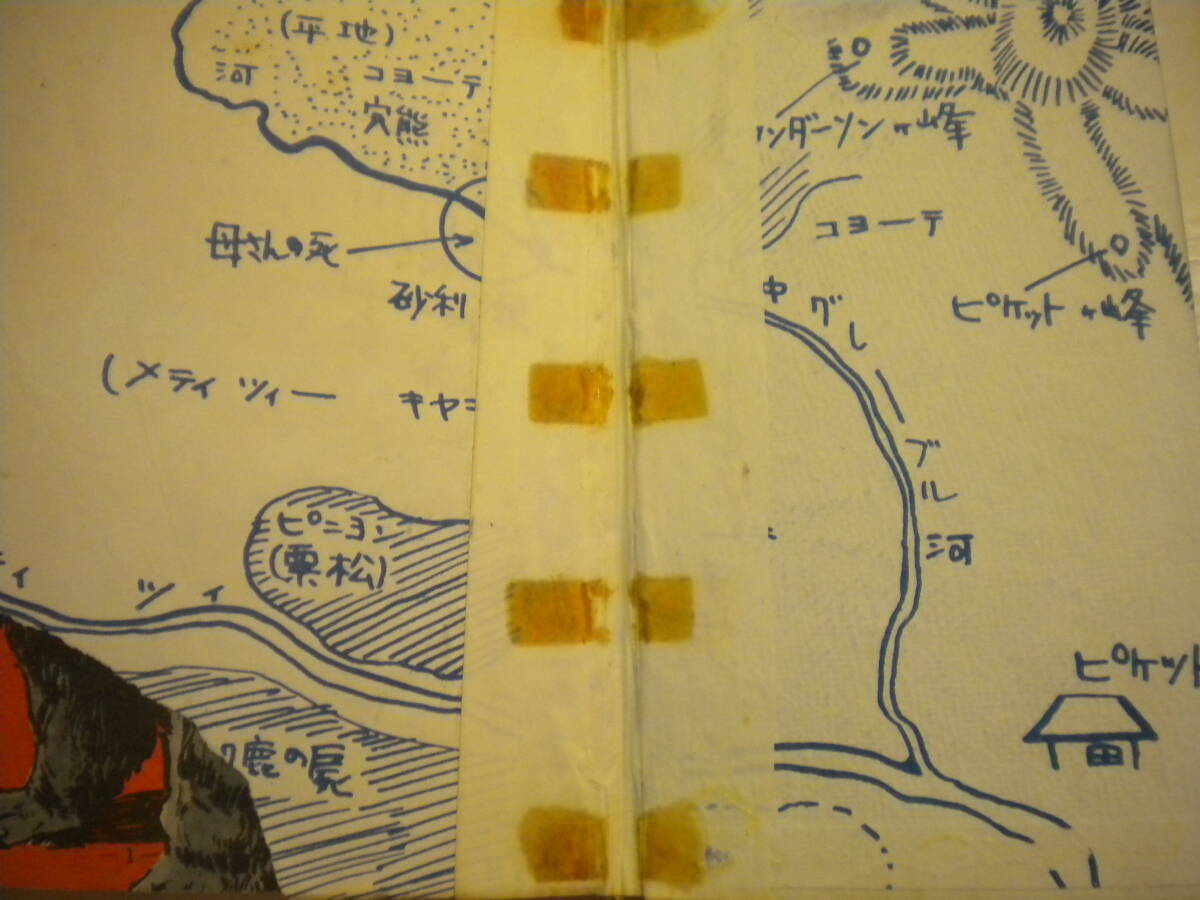 (平地)
河
コヨーテ
穴熊
母さんの死
砂利
(メティツィー
キャニ
ピニヨン
(栗松)
ィ
ツィ
鹿の屍
1
ンダーソンヶ峰
コヨーテ
ピケットヶ峰
グレーブル河
ピケット